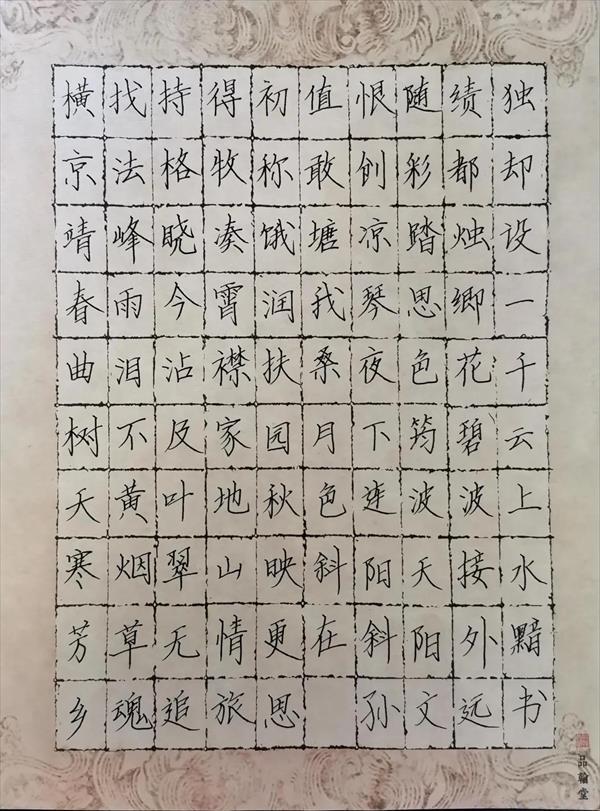 横找持得初值恨随绩独
京法格牧称敢创彩都却
靖峰晓凑饿塘凉踏烛设
春雨今霄润我琴思卿一
曲泪沾襟扶桑夜色花千
树不及家园月下筠碧云
天黄叶地秋色连波波上
寒烟翠山映斜阳天接水
芳草无情更在斜阳外黯
乡魂追旅思 孙文远书
品翰堂